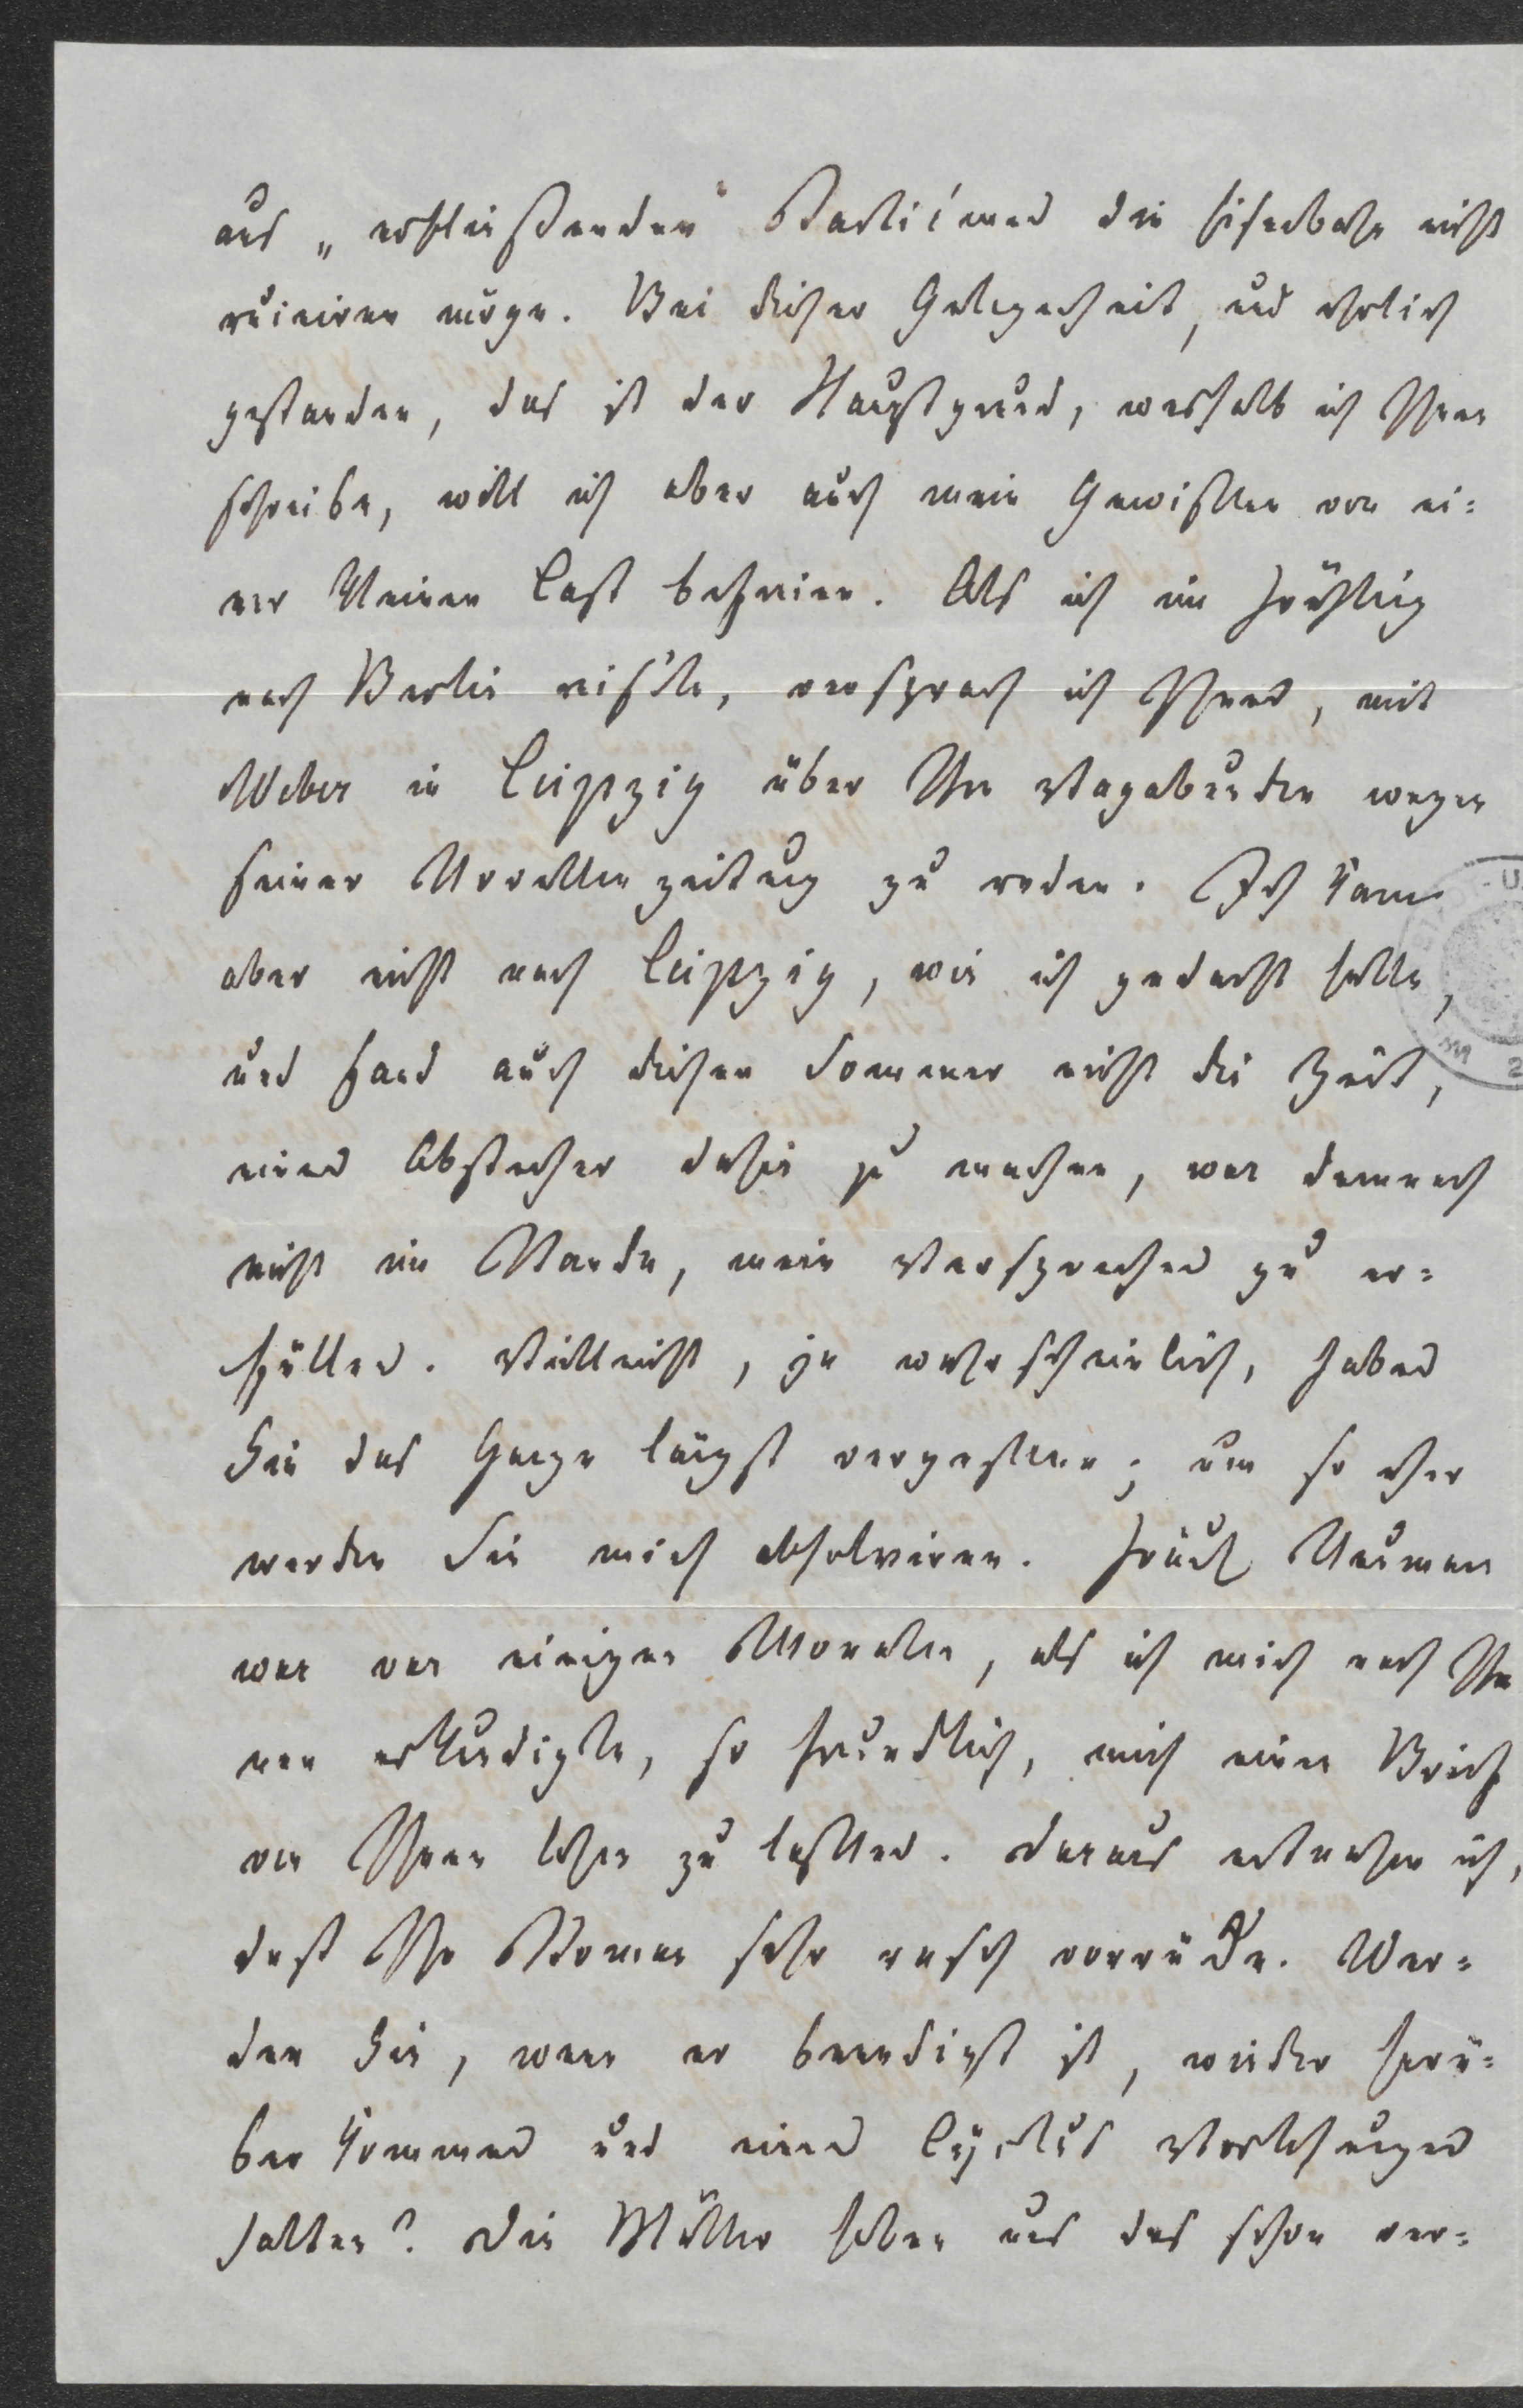 uns „erschießenden" Berlinern die Eisenbahn nicht
ruiniren möge. Bei dieser Gelegenheit, und ehrlich
gestanden, das ist der Hauptgrund, weshalb ich Ihnen
schreibe, will ich aber auch mein Gewissen von ei=
ner kleinen Last befreien. Als ich im Frühling
nach Berlin reis'te, versprach ich Ihnen, mit
Weber in Leipzig über Ihre Vagabunden wegen
seiner Novellenzeitung zu reden. Ich kam
aber nicht nach Leipzig, wie ich gedacht hatte,
und fand auch diesen Sommer nicht die Zeit,
einen Abstecher dahin zu machen, war demnach
nicht im Stande, mein Versprechen zu er=
füllen. Vielleicht, ja wahrscheinlich, haben
Sie das Ganze längst vergessen; um so eher
werden Sie mich absolviren. Neumann
war vor einigen Monaten, als ich mich nach Ih
nen erkundigte, so freundlich, mich einen Brief
von Ihnen lesen zu lassen. Daraus entnehme ich,
daß Ihr Roman sehr rasch vorrückt. Wer=
den Sie, wenn er beendigt ist, wieder herü=
ber kommen und einen Cyclus Vorlesungen
halten? Die Müller haben uns das schon ver=